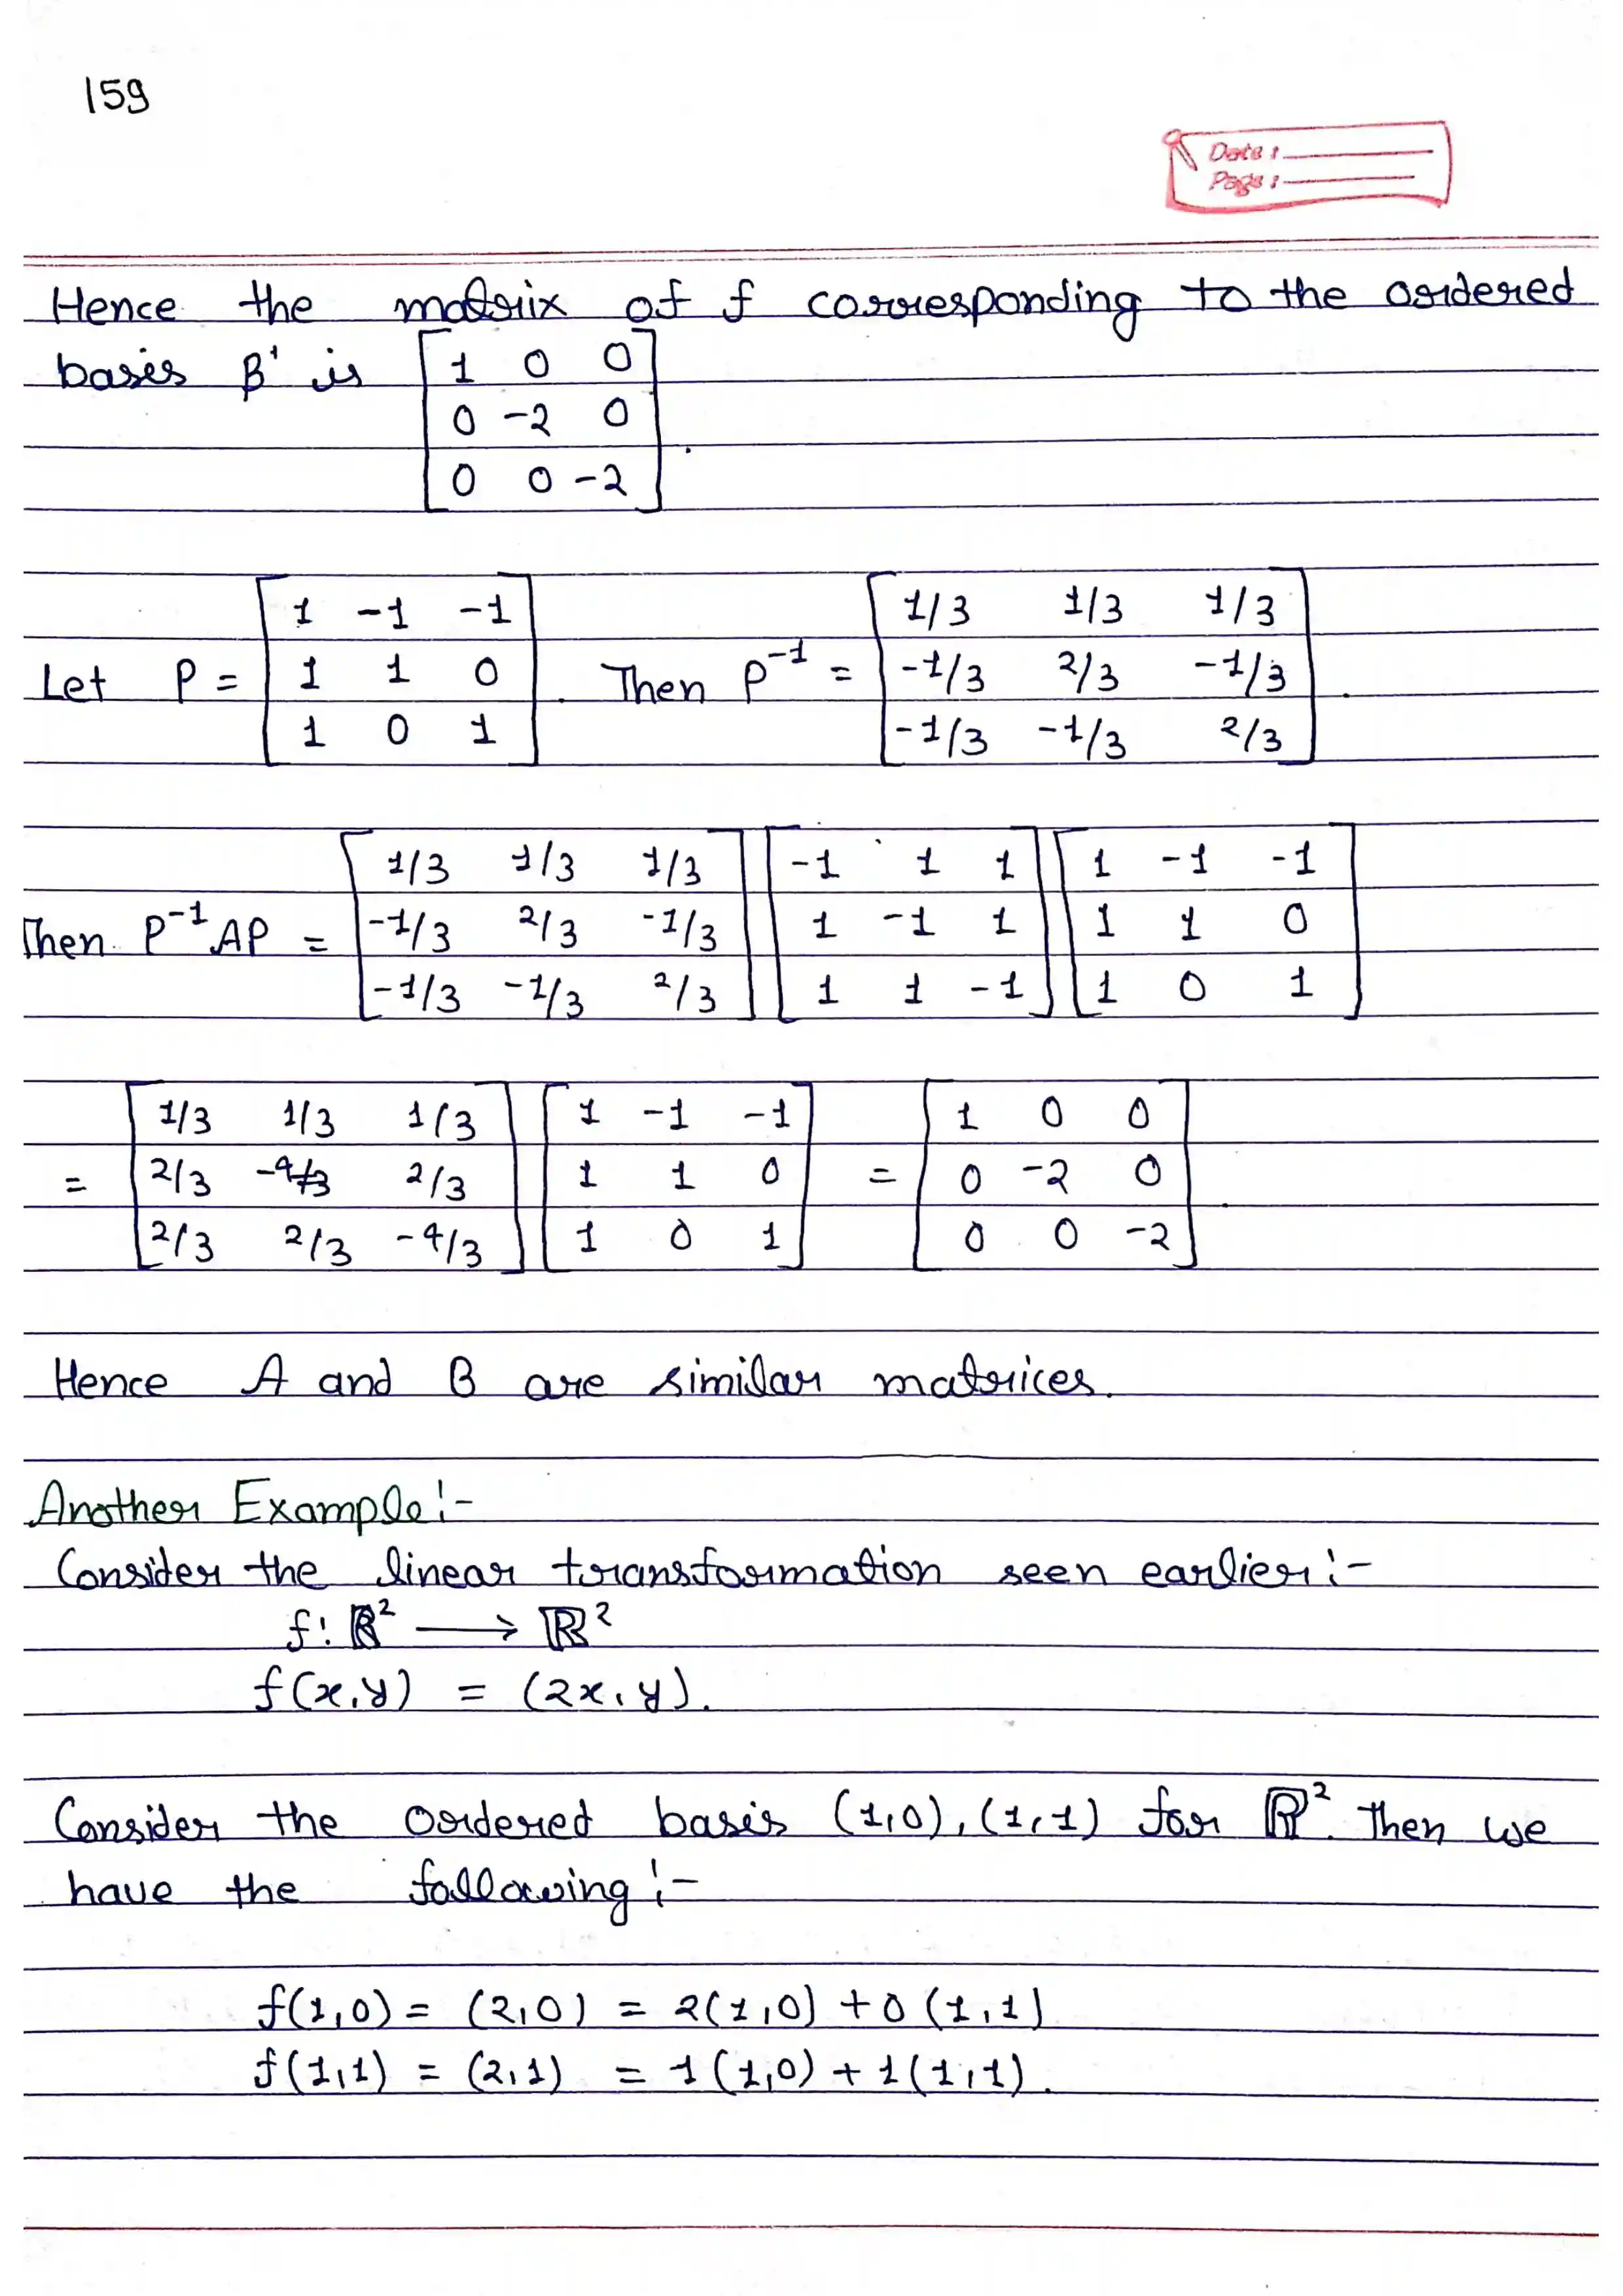 159
Date :
Page :
Hence the matrix of f corresponding to the ordered
basis β' is [1 0 0
0 -2 0
0 0 -2].
Let P = [1 -1 -1
1 1 0
1 0 1]. Then P⁻¹ = [1/3 1/3 1/3
-1/3 2/3 -1/3
-1/3 -1/3 2/3].
Then P⁻¹AP = [1/3 1/3 1/3
-1/3 2/3 -1/3
-1/3 -1/3 2/3] [-1 1 1
1 -1 1
1 1 -1] [1 -1 -1
1 1 0
1 0 1]
= [1/3 1/3 1/3
2/3 -4/3 2/3
2/3 2/3 -4/3] [1 -1 -1
1 1 0
1 0 1] = [1 0 0
0 -2 0
0 0 -2].
Hence A and B are similar matrices.
Another Example:-
Consider the linear transformation seen earlier:-
f: ℝ² ⟶ ℝ²
f(x,y) = (2x,y).
Consider the ordered basis (1,0), (1,1) for ℝ². Then we
have the following:-
f(1,0) = (2,0) = 2(1,0) + 0(1,1)
f(1,1) = (2,1) = 1(1,0) + 1(1,1).